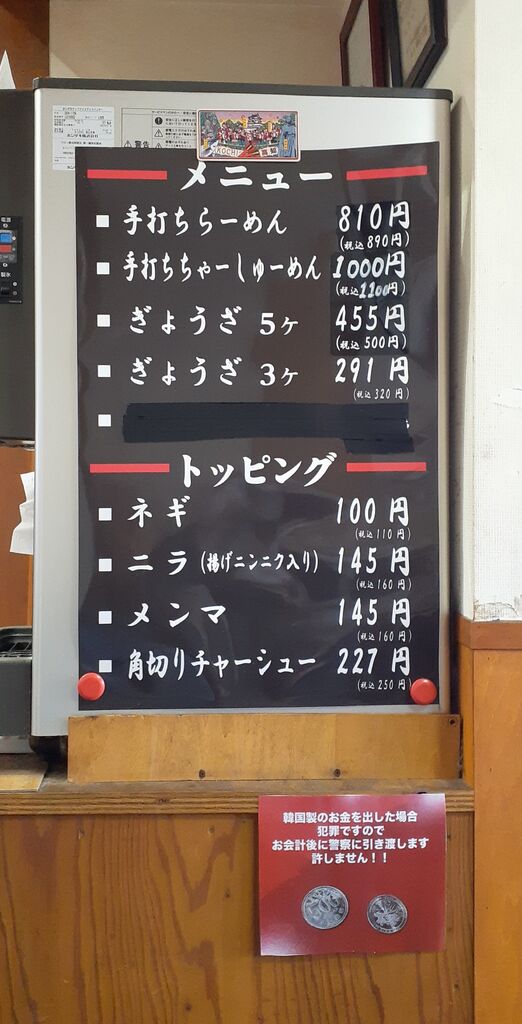 警告
KOCHI
高知
メニュー
手打ちらーめん 810円
(税込890円)
手打ちちゃーしゅーめん 1000円
(税込1100円)
ぎょうざ 5ヶ 455円
(税込500円)
ぎょうざ 3ヶ 291円
(税込320円)
トッピング
ネギ 100円
(税込110円)
ニラ(揚げニンニク入り) 145円
(税込160円)
メンマ 145円
(税込160円)
角切りチャーシュー 227円
(税込250円)
韓国製のお金を出した場合
犯罪ですので
お会計後に警察に引き渡します
許しません！！